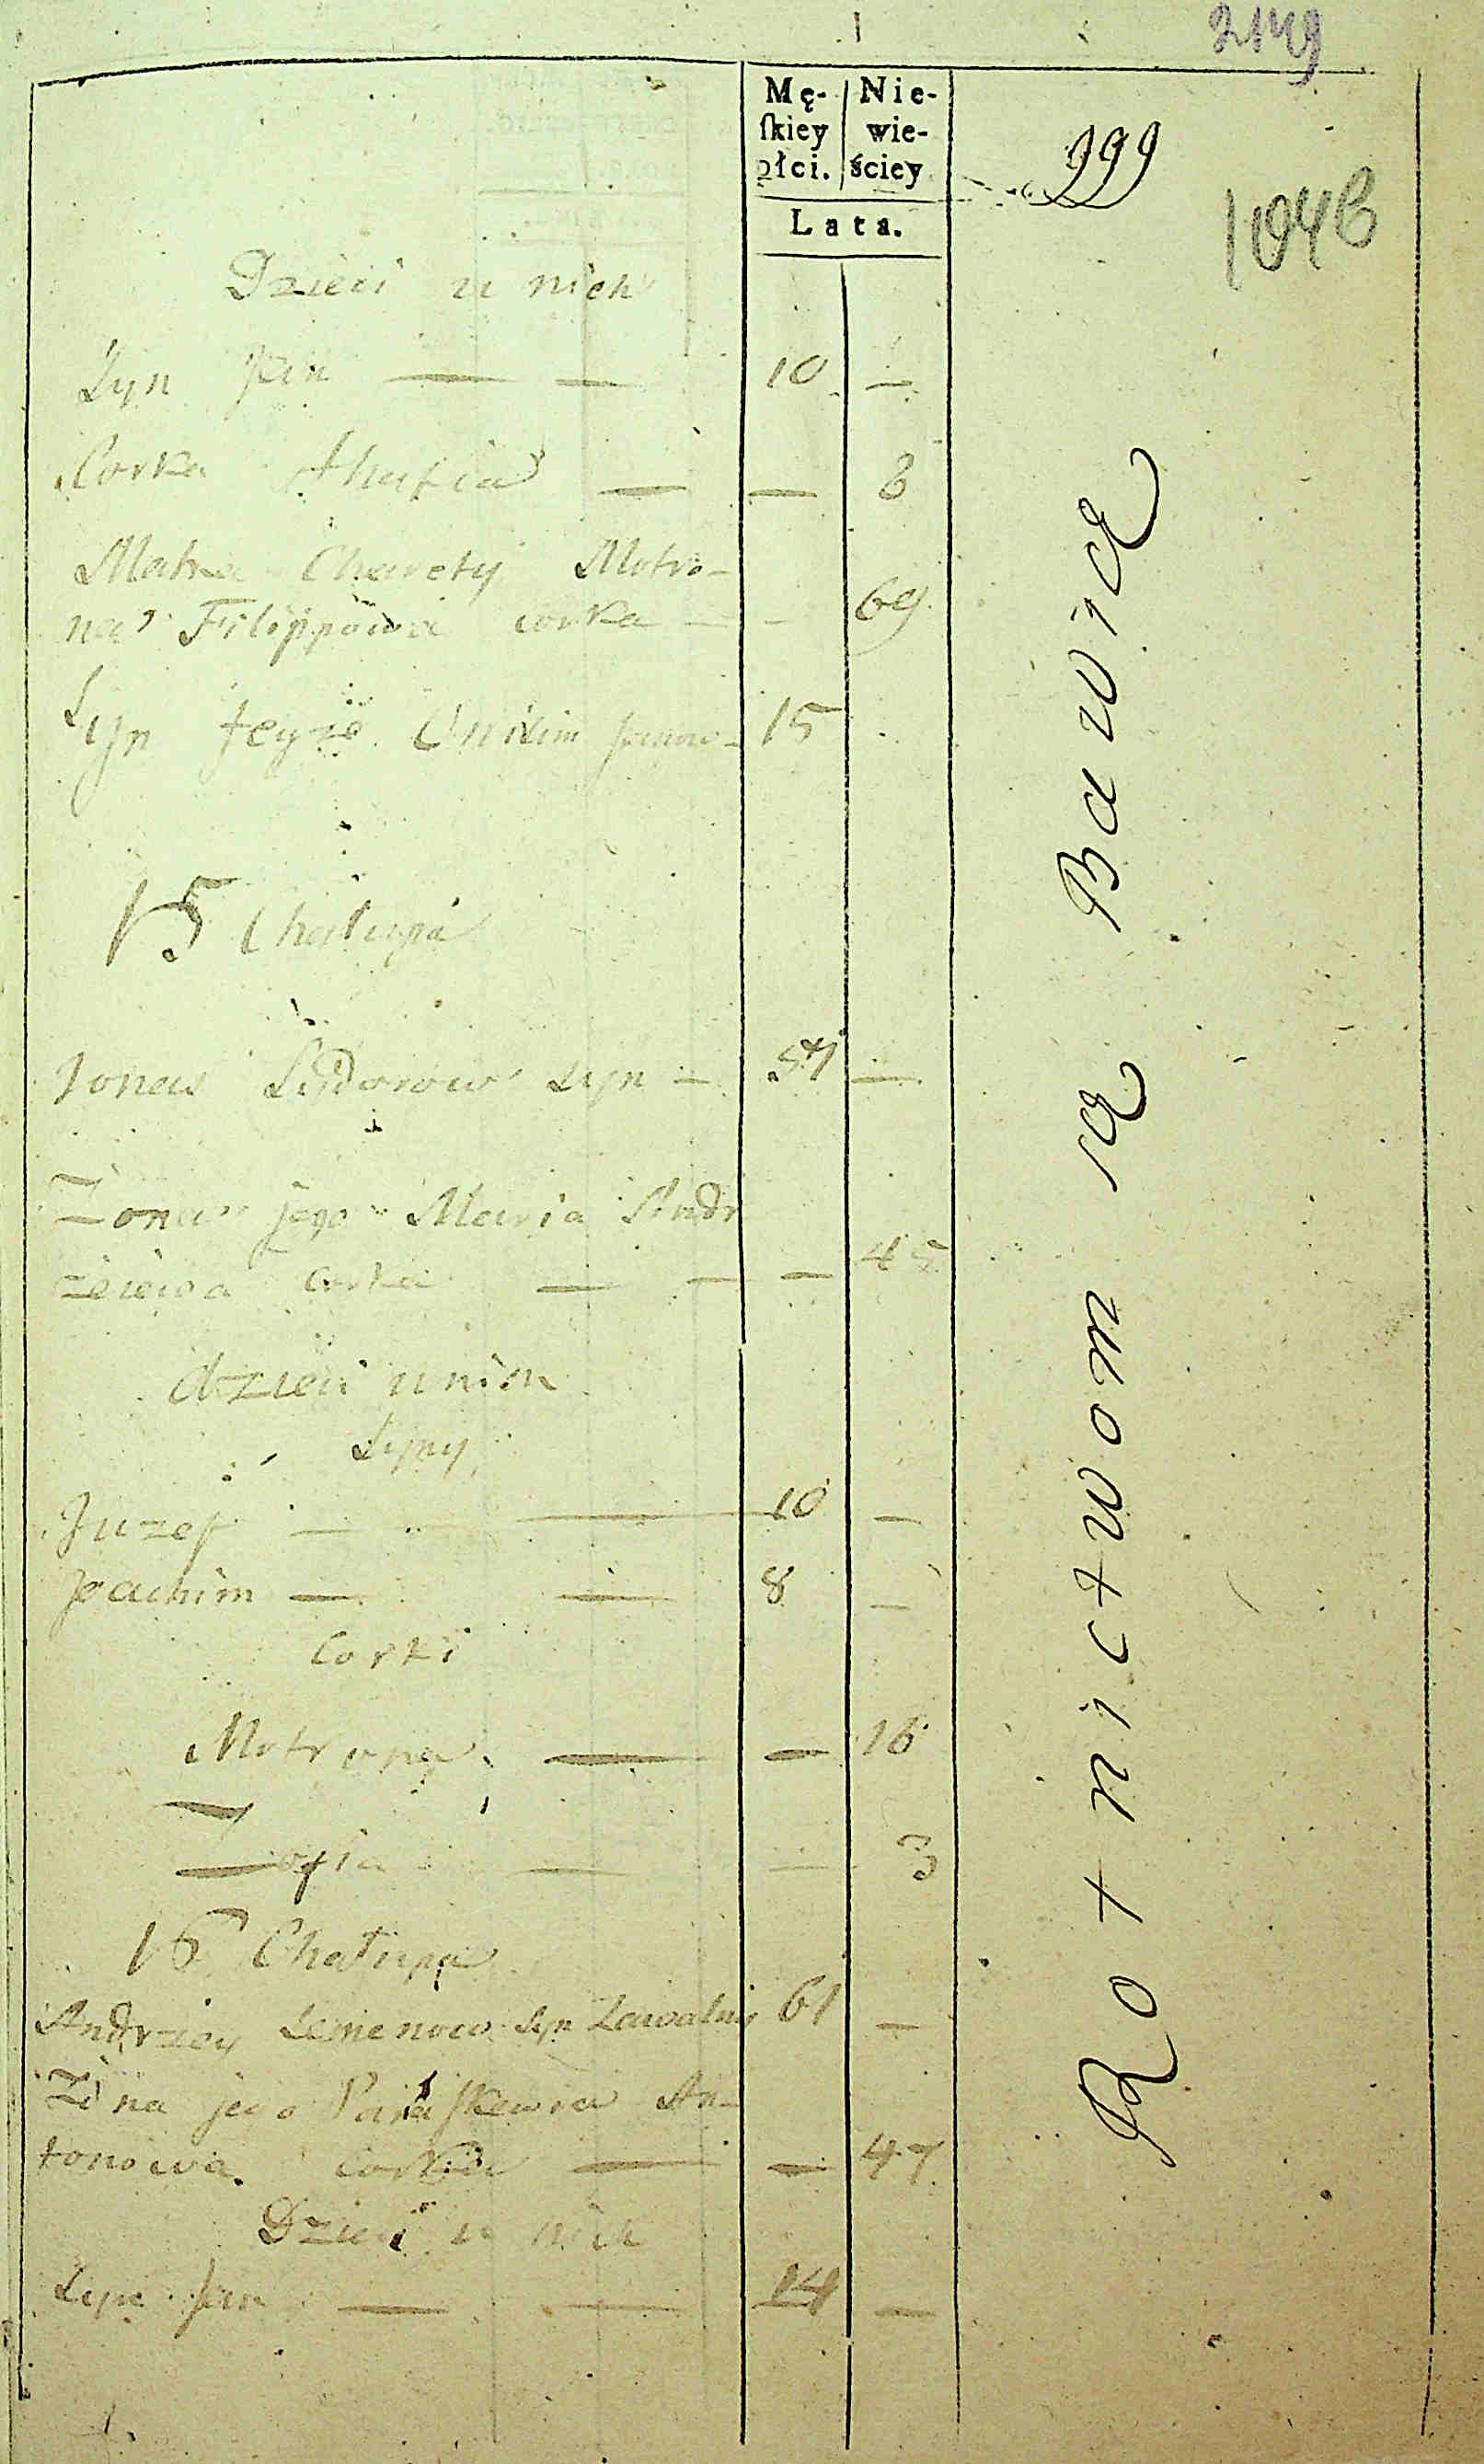 2149
Mę-
ſkiey
płci.
Nie-
wie-
ściey
Lata.
999
104
Dzieci u nich
Syn Jan — — 10 —
Corka Ahafia — — 8
Matka Charety Motro-
na Filippowa corka — - 69
Syn Onisim 15
15 Chałupa
Jonas Sydorow Syn — 57 —
Żona jego Maria Andr
zeiewa Corka — — — 45
dzieci u nich
Syny
Juzef — — 10 —
Joachim — — 8 —
Corki
Motrona — — 16
Zofia — — 3
16 Chałupa
Andrzey Semenow Syn Zawalny 61 —
Żona jego Paraſkewia An-
tonowa Corka — — 47
Dzieci u nich
Syn Jan — — 14 —
Rotnictwom